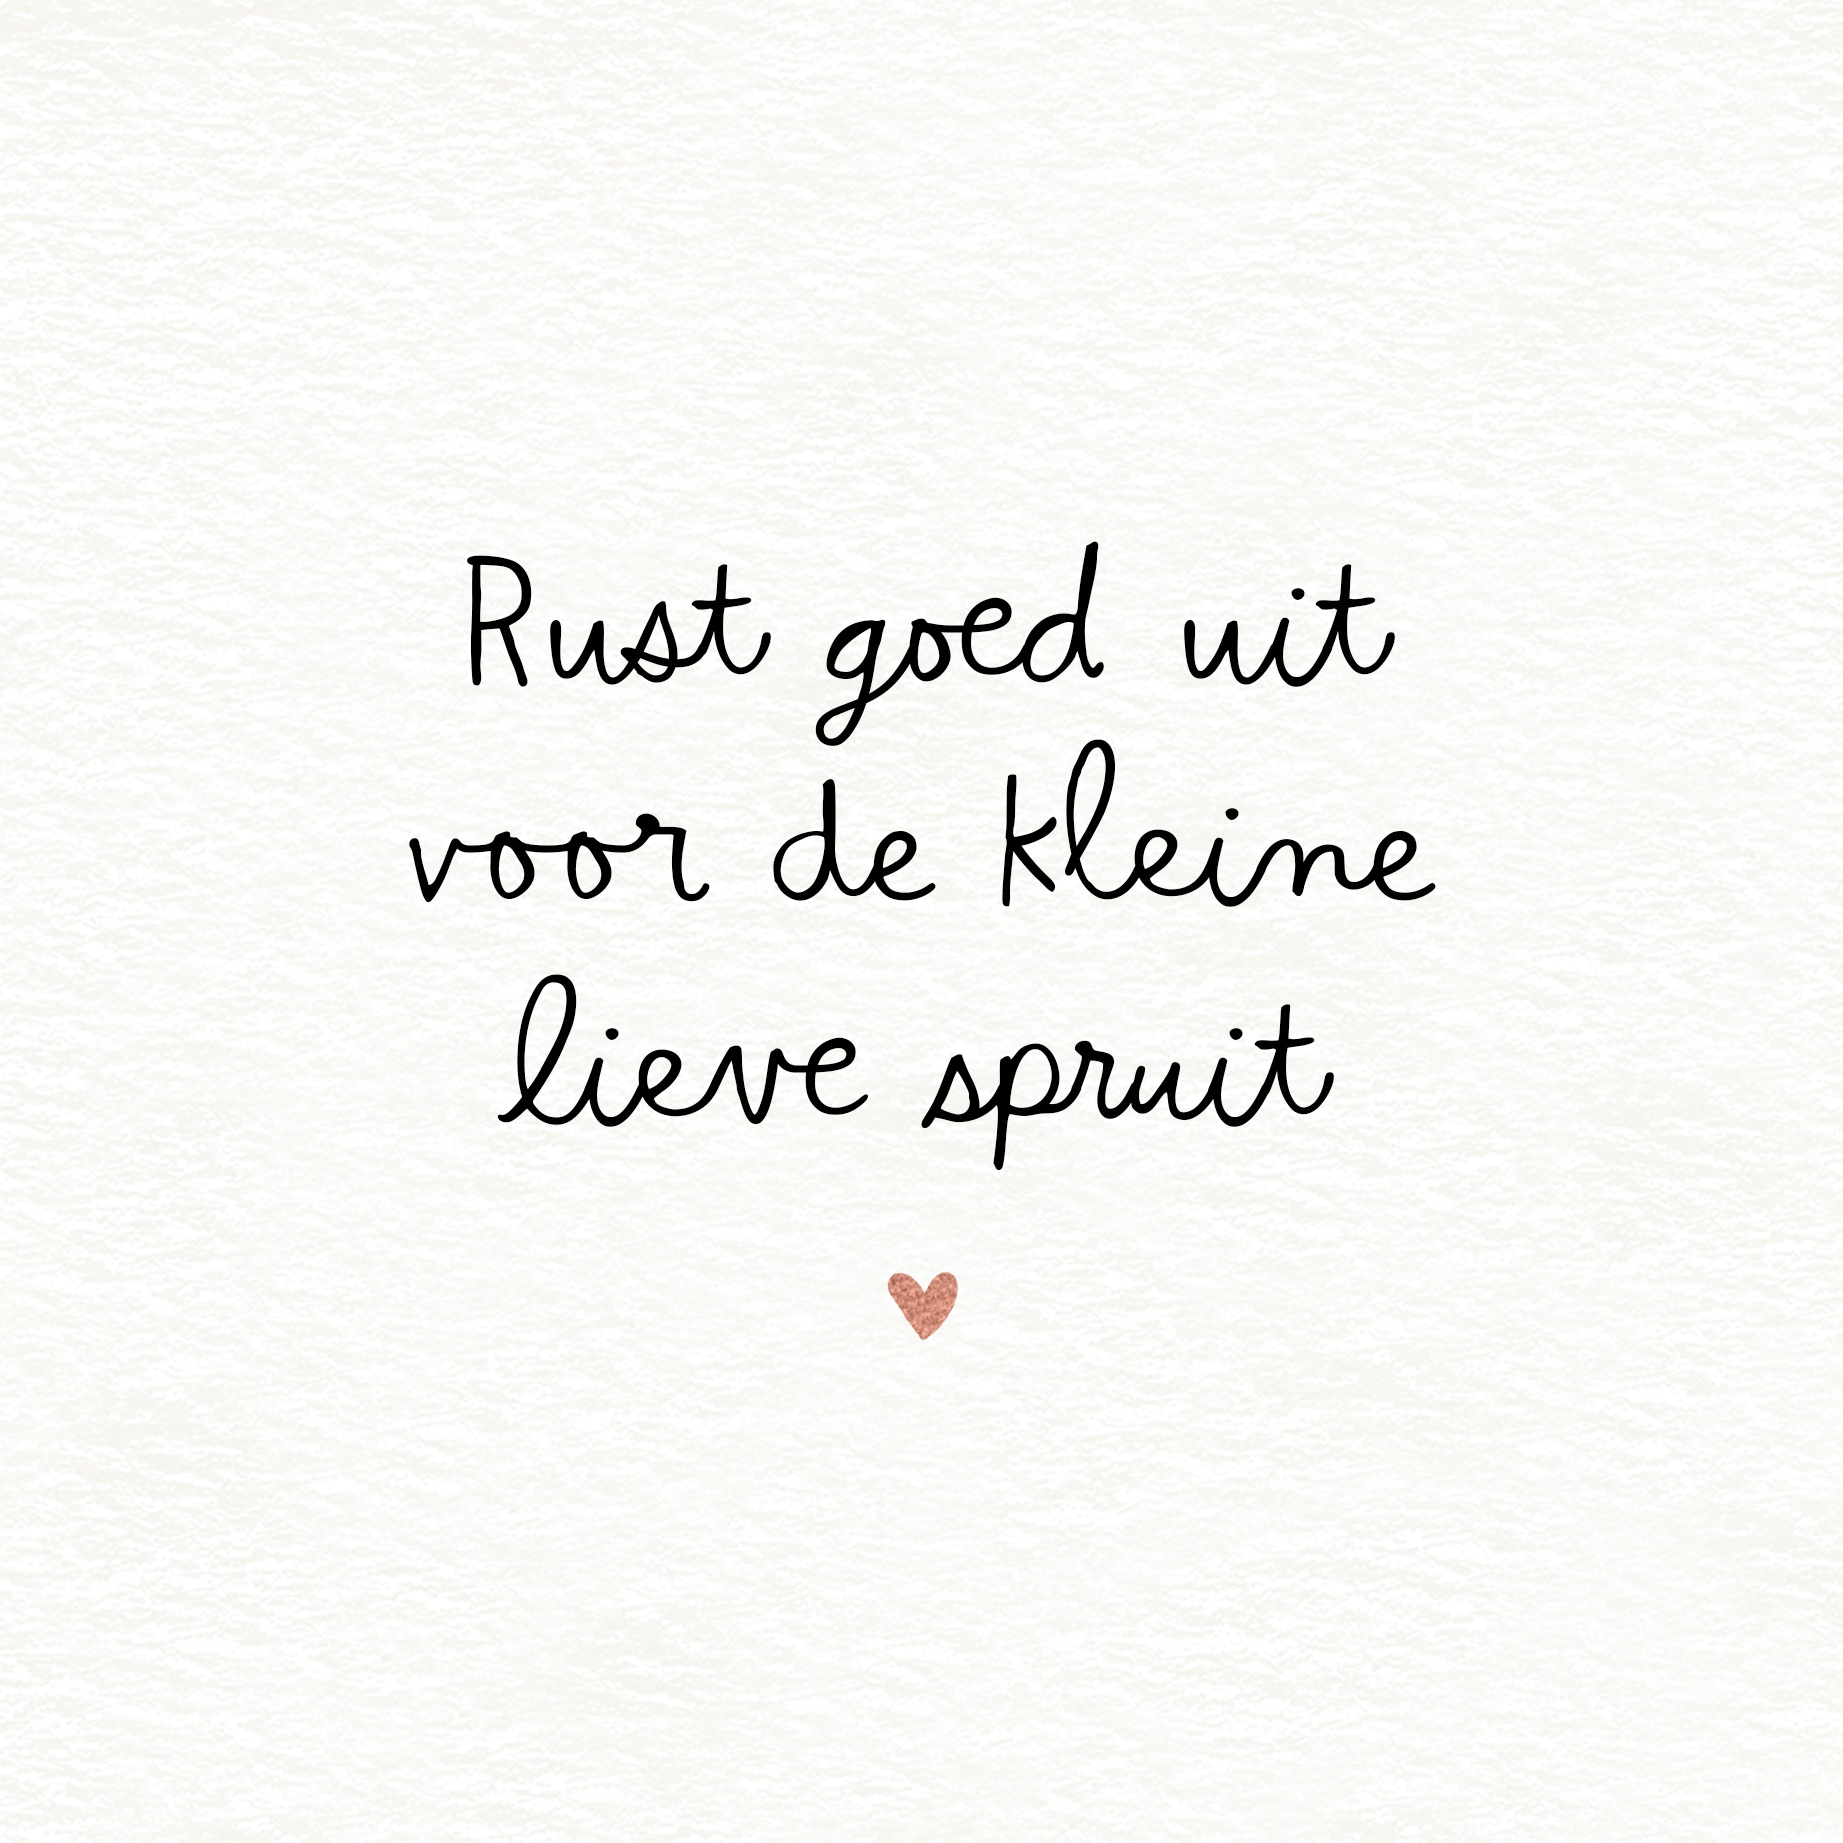 Rust goed uit
voor de kleine
lieve spruit